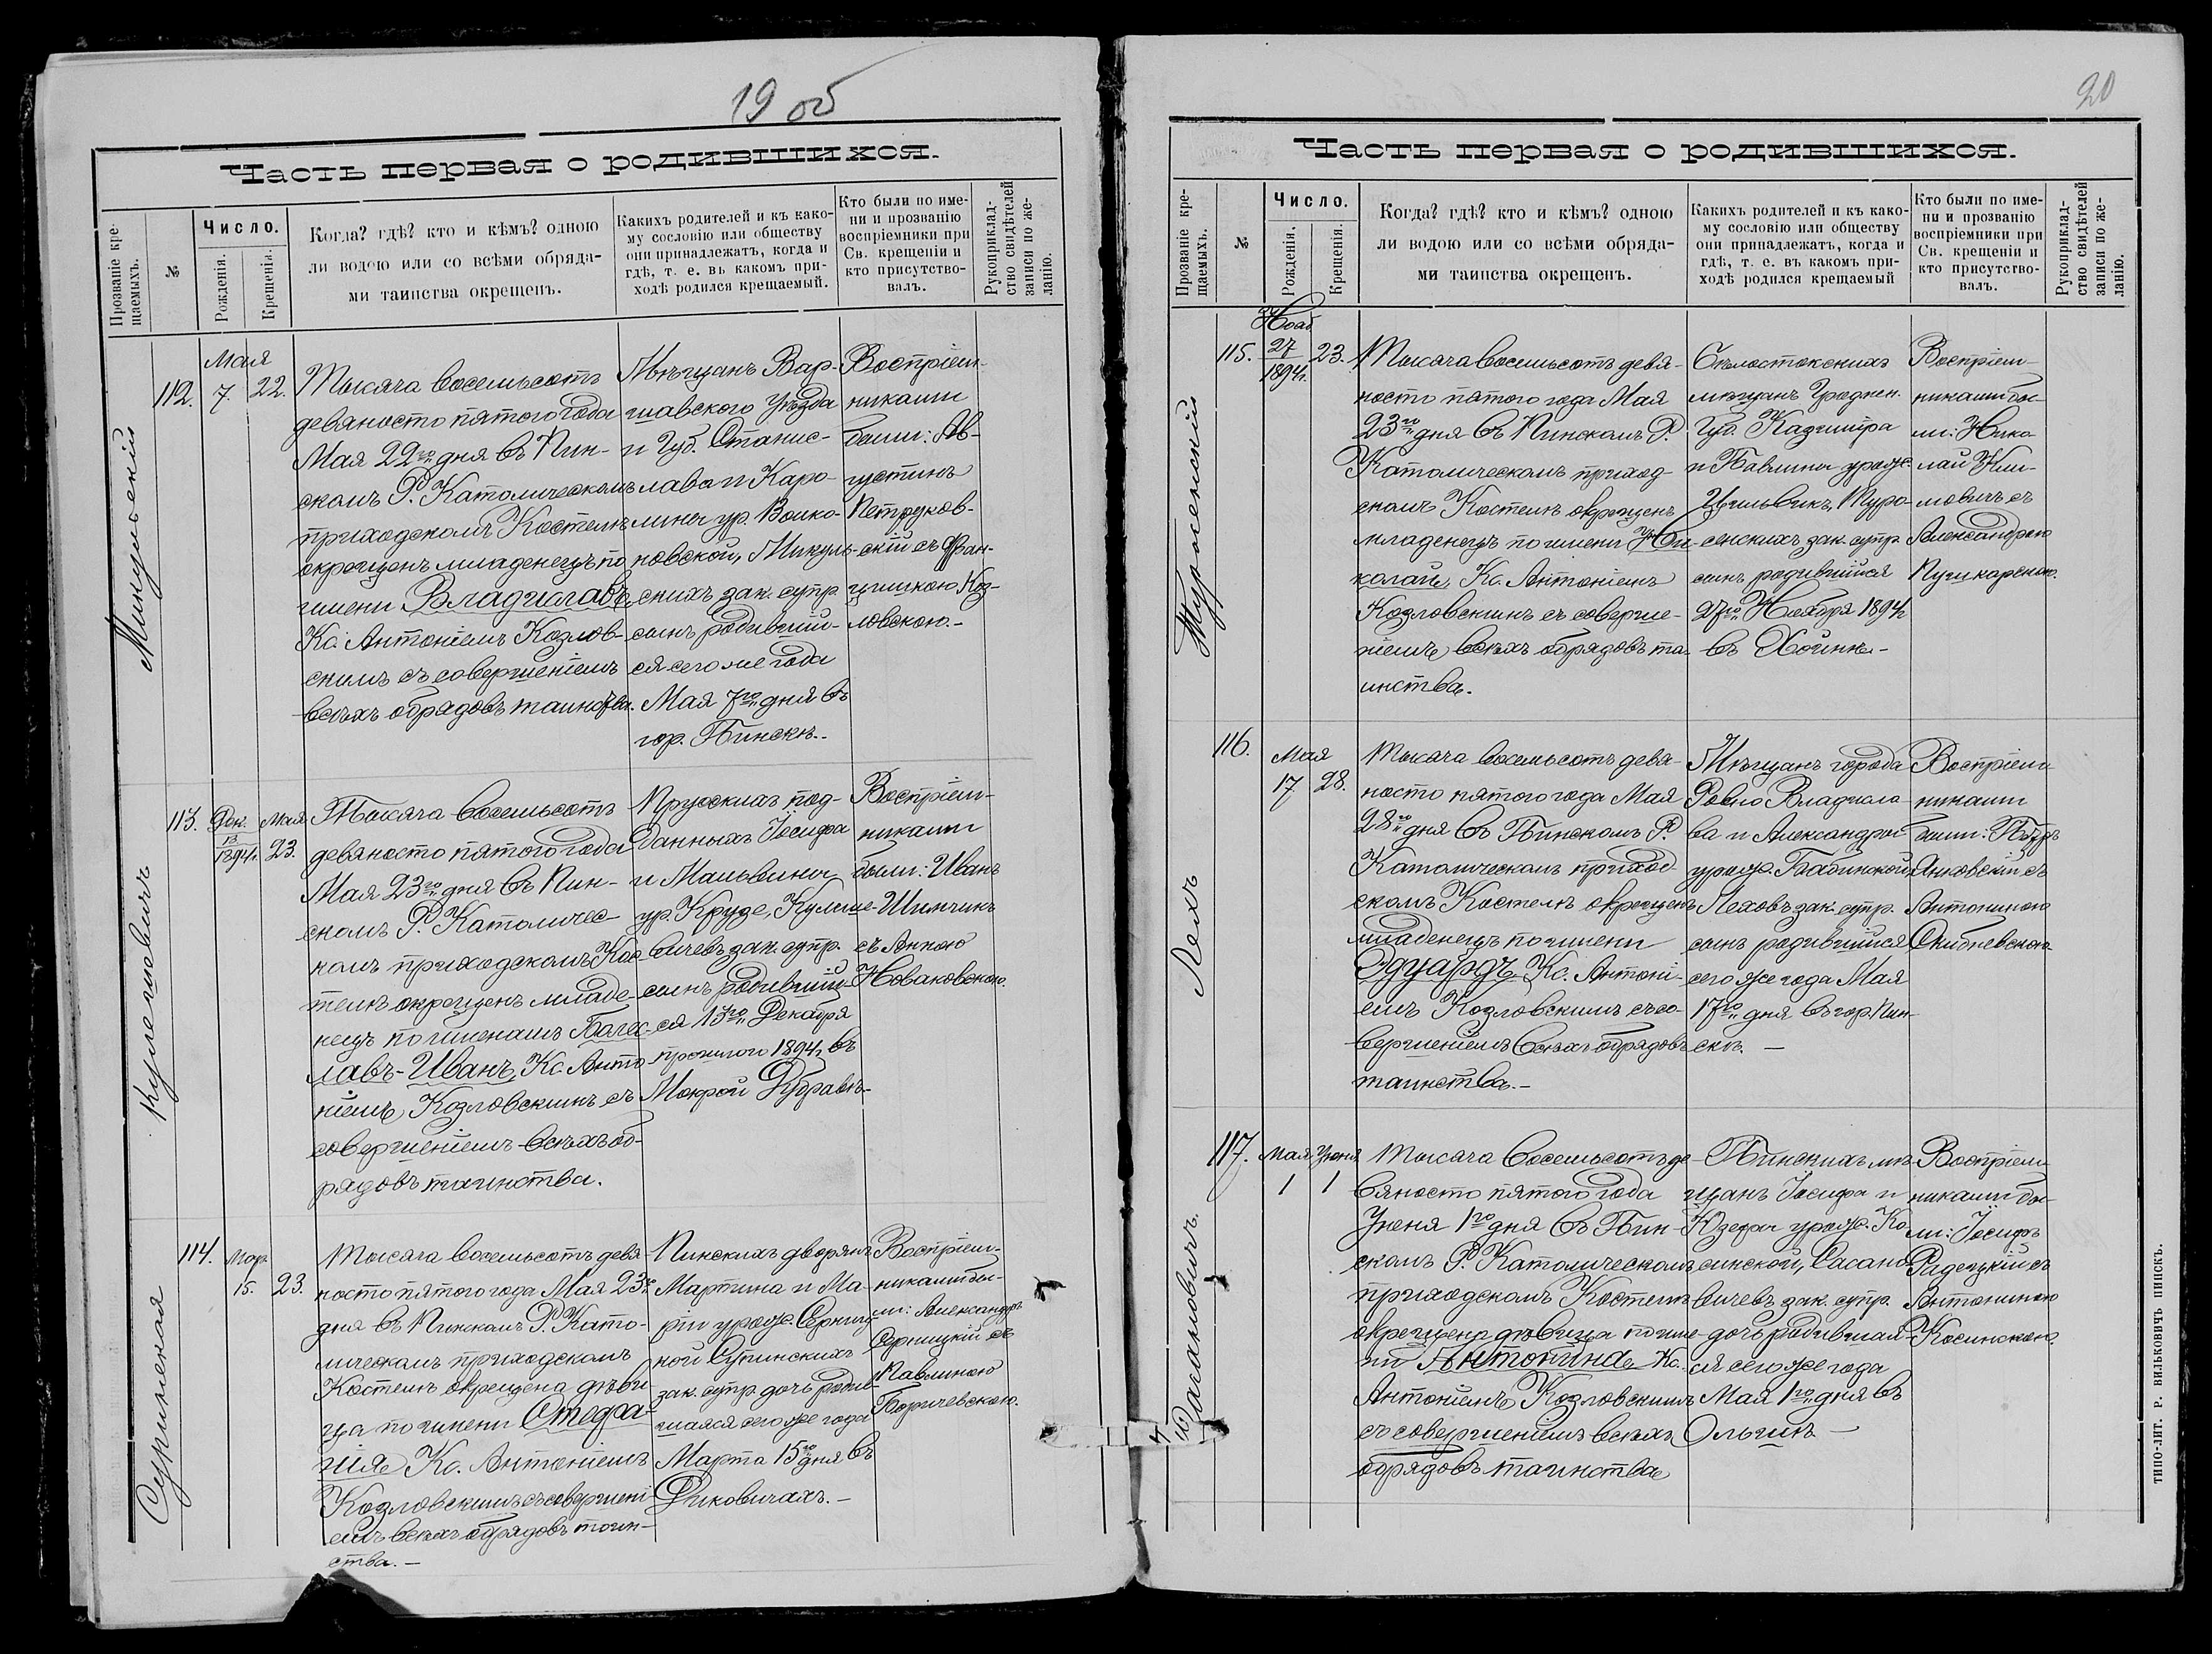 19 об
Часть первая о родившихся.
Прозваніе кре-
щаемыхъ.
№
Число.
Рожденія.
Крещенія.
Когда? гдѣ? кто и кѣмъ? одною
ли водою или со всѣми обряда-
ми таинства окрещенъ.
Какихъ родителей и къ како-
му сословію или обществу
они принадлежатъ, когда и
гдѣ, т. е. въ какомъ при-
ходѣ родился крещаемый.
Кто были по име-
ни и прозванію
воспріемники при
Св. крещеніи и
кто присутство-
валъ.
Рукоприклад-
ство свидѣтелей
записи по же-
ланію.
Микульскій
112.
Мая
7. 22.
Тысяча восемьсотъ
девяносто пятого года
Мая 22го дня въ Пин-
скомъ Р. Католическомъ
приходскомъ Костелѣ
окрещенъ младенецъ по
имени Владиславъ,
Кс. Антоніемъ Козлов-
скимъ съ совершеніемъ
всѣхъ обрядовъ таинства.
Мѣщанъ Вар-
шавского Уѣзда
и Губ. Станис-
лава и Каро-
лины ур. Волко-
новской, Микуль-
скихъ зак. супр.
сынъ родивший-
ся сего же года
Мая 7го дня въ
гор. Пинскѣ.
Воспріем-
никами
были: Ав-
густинъ
Петруков-
скій съ Фран-
цишкою Коз-
ловскою.
Кулешовичъ
113.
Дек.
13
1894г.
Мая
23.
Тысяча восемьсотъ
девяносто пятого года
Мая 23го дня въ Пин-
скомъ Р. Католичес-
комъ приходскомъ Кос-
телѣ окрещенъ младе-
нецъ по именамъ Болес-
лавъ-Иванъ, Кс. Анто-
ніемъ Козловскимъ съ
совершеніемъ всѣхъ об-
рядовъ таинства.
Прусскихъ под-
данныхъ Іосифа
и Мальвины
ур. Крузе, Кулеше-
вичевъ зак. супр.
сынъ родивший-
ся 13го Декабря
прошлого 1894г. въ
Мокрой Дубравѣ
Воспріем-
никами
были: Иванъ
Шимчикъ
съ Анною
Новаковскою.
Сушинская
114.
Мар.
15. 23.
Тысяча восемьсотъ девя-
носто пятого года Мая 23го
дня въ Пинскомъ Р. Като-
лическомъ приходскомъ
Костелѣ окрещена дѣви-
ца по имени Стефа-
нія Кс. Антоніемъ
Козловскимъ съ совершені-
емъ всѣхъ обрядовъ таин-
ства.
Пинскихъ дворянъ
Мартина и Ма-
ріи урож. Серниц-
кой Сушинскихъ
зак. супр. дочь родив-
шаяся сего же года
Марта 15го дня въ
Диковичахъ.
Воспріем-
никами бы-
ли: Александръ
Серницкій съ
Павлиною
Боричевскою.
20
Часть первая о родившихся.
Прозваніе кре-
щаемыхъ.
№
Число.
Рожденія.
Крещенія.
Когда? гдѣ? кто и кѣмъ? одною
ли водою или со всѣми обряда-
ми таинства окрещенъ.
Какихъ родителей и къ како-
му сословію или обществу
они принадлежатъ, когда и
гдѣ, т. е. въ какомъ при-
ходѣ родился крещаемый
Кто были по име-
ни и прозванію
воспріемники при
Св. крещеніи и
кто присутство-
валъ.
Рукоприклад-
ство свидѣтелей
записи по же-
ланію.
Туросенскій
115.
Нояб
27
1894г.
23.
Тысяча восемьсотъ девя-
носто пятого года Мая
23го дня въ Пинскомъ Р.
Католическомъ приход-
скомъ Костелѣ окрещенъ
младенецъ по имени Ни-
колай, Кс. Антоніемъ
Козловскимъ съ соверше-
ніемъ всѣхъ обрядовъ та-
инства.
Бѣлостокскихъ
мѣщанъ Гроднен.
Губ. Казимира
и Павлины урож.
Цильвикъ, Туро-
сенскихъ зак. супр.
сынъ родившійся
27го Ноября 1894г.
въ Хойнѣ
Воспріем-
никами бы-
ли: Нико-
лай Кли-
мовичъ съ
Александрою
Пушкарскою.
Лехъ
116.
Мая
17 28.
Тысяча восемьсотъ девя-
носто пятого года Мая
28го дня въ Пинскомъ Р.
Католическомъ приход-
скомъ Костелѣ окрещенъ
младенецъ по имени
Эдуардъ, Кс. Антоні-
емъ Козловскимъ съ со-
вершеніемъ всѣхъ обрядовъ
таинства.
Мѣщанъ города
Ровно Владисла-
ва и Александры
урож. Бабинской
Леховъ зак. супр.
сынъ родившійся
сего же года Мая
17го дня въ гор. Пин-
скѣ.
Воспріем-
никами
были: Петръ
Янковскій съ
Антониною
Скибневскою
Сасановичъ.
117.
Мая Іюня
1 1
Тысяча восемьсотъ де-
вяносто пятого года
Іюня 1го дня въ Пин-
скомъ Р. Католическомъ
приходскомъ Костелѣ
окрещена дѣвица по име-
ни Антонина Кс.
Антоніемъ Козловскимъ
съ совершеніемъ всѣхъ
обрядовъ таинства
Пинскихъ мѣ-
щанъ Іосифа и
Юзефы урож. Ко-
синской, Сасано-
вичевъ зак. супр.
дочь родившая-
ся сего же года
Мая 1го дня въ
Ольпинѣ
Воспріем-
никами бы-
ли: Іосифъ
Радецкій съ
Антониною
Косинскою.
ТИПО-ЛИТ. Р. ВИЛЬКОВИЧЪ ПИНСКЪ.